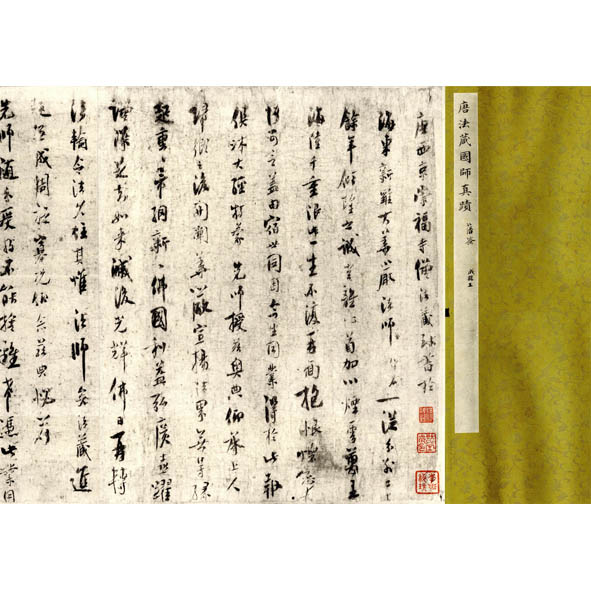 唐法藏國師真蹟
唐西京崇福寺僧法藏致書於
海東新羅大華嚴法師侍者一從分別二十
餘年傾望之誠豈離心首加以煙雲萬里
海陸千重限此一生不復再面抱恨懷戀夫
何可言蓋由宿世同因今生同業得於此報
俱沐大經特蒙先師授茲奧典仰承上人
歸鄉之後開闡華嚴宣揚法界無㝵緣
起重重帝網新新佛國利益弘廣喜躍
增深是知如來滅後光輝佛日再轉
法輪令法久住其惟法師矣法藏進
趣無成周旋寡況仰念茲典愧荷
先師隨分受持不能捨離希憑此業因